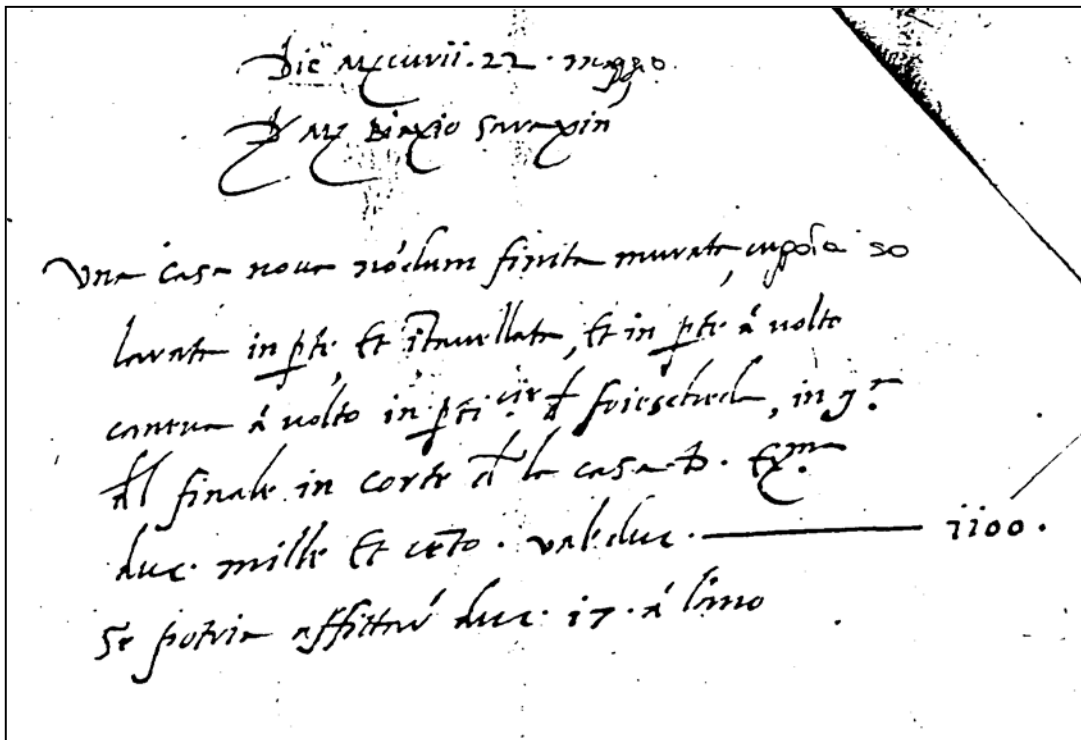 Die MCCCCVII. 22. maggo.
D M Biaxio Savaxin
Una casa noua nōdum finita murata, cupola so
larata in pte, Et itauellata, Et in pte á uolto
caneua á uolto in pti in
dl finale in corte d la casa Exma
duc. mille Et cēto. val duc. ——— 1100.
Se potria affittar duc. 17. á lāno